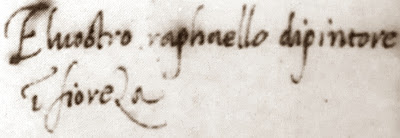 El vostro raphaello dipintore
ĩ fiorẽza